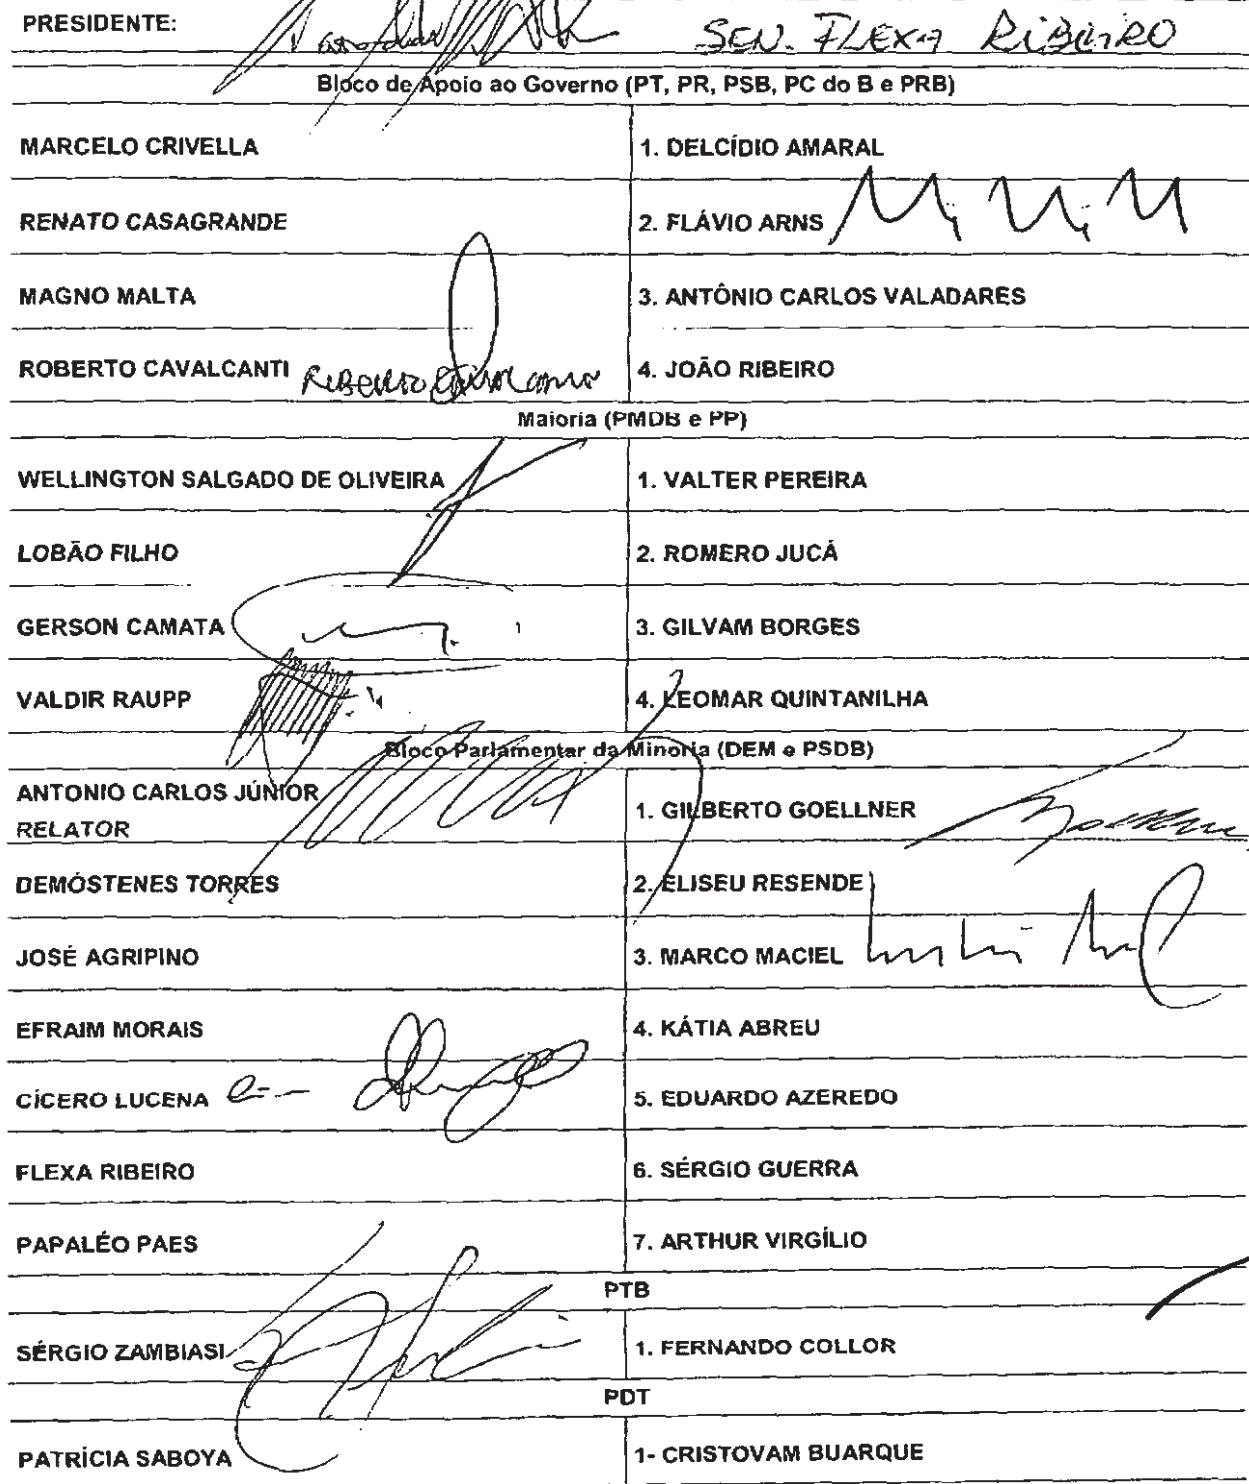 PRESIDENTE: SEN. FLEXA RIBEIRO
Bloco de Apoio ao Governo (PT, PR, PSB, PC do B e PRB)
MARCELO CRIVELLA 1. DELCÍDIO AMARAL
RENATO CASAGRANDE 2. FLÁVIO ARNS
MAGNO MALTA 3. ANTÔNIO CARLOS VALADARES
ROBERTO CAVALCANTI 4. JOÃO RIBEIRO
Maioria (PMDB e PP)
WELLINGTON SALGADO DE OLIVEIRA 1. VALTER PEREIRA
LOBÃO FILHO 2. ROMERO JUCÁ
GERSON CAMATA 3. GILVAM BORGES
VALDIR RAUPP 4. LEOMAR QUINTANILHA
Bloco Parlamentar da Minoria (DEM e PSDB)
ANTONIO CARLOS JÚNIOR 1. GILBERTO GOELLNER
RELATOR
DEMÓSTENES TORRES 2. ELISEU RESENDE
JOSÉ AGRIPINO 3. MARCO MACIEL
EFRAIM MORAIS 4. KÁTIA ABREU
CÍCERO LUCENA 5. EDUARDO AZEREDO
FLEXA RIBEIRO 6. SÉRGIO GUERRA
PAPALÉO PAES 7. ARTHUR VIRGÍLIO
PTB
SÉRGIO ZAMBIASI 1. FERNANDO COLLOR
PDT
PATRÍCIA SABOYA 1- CRISTOVAM BUARQUE